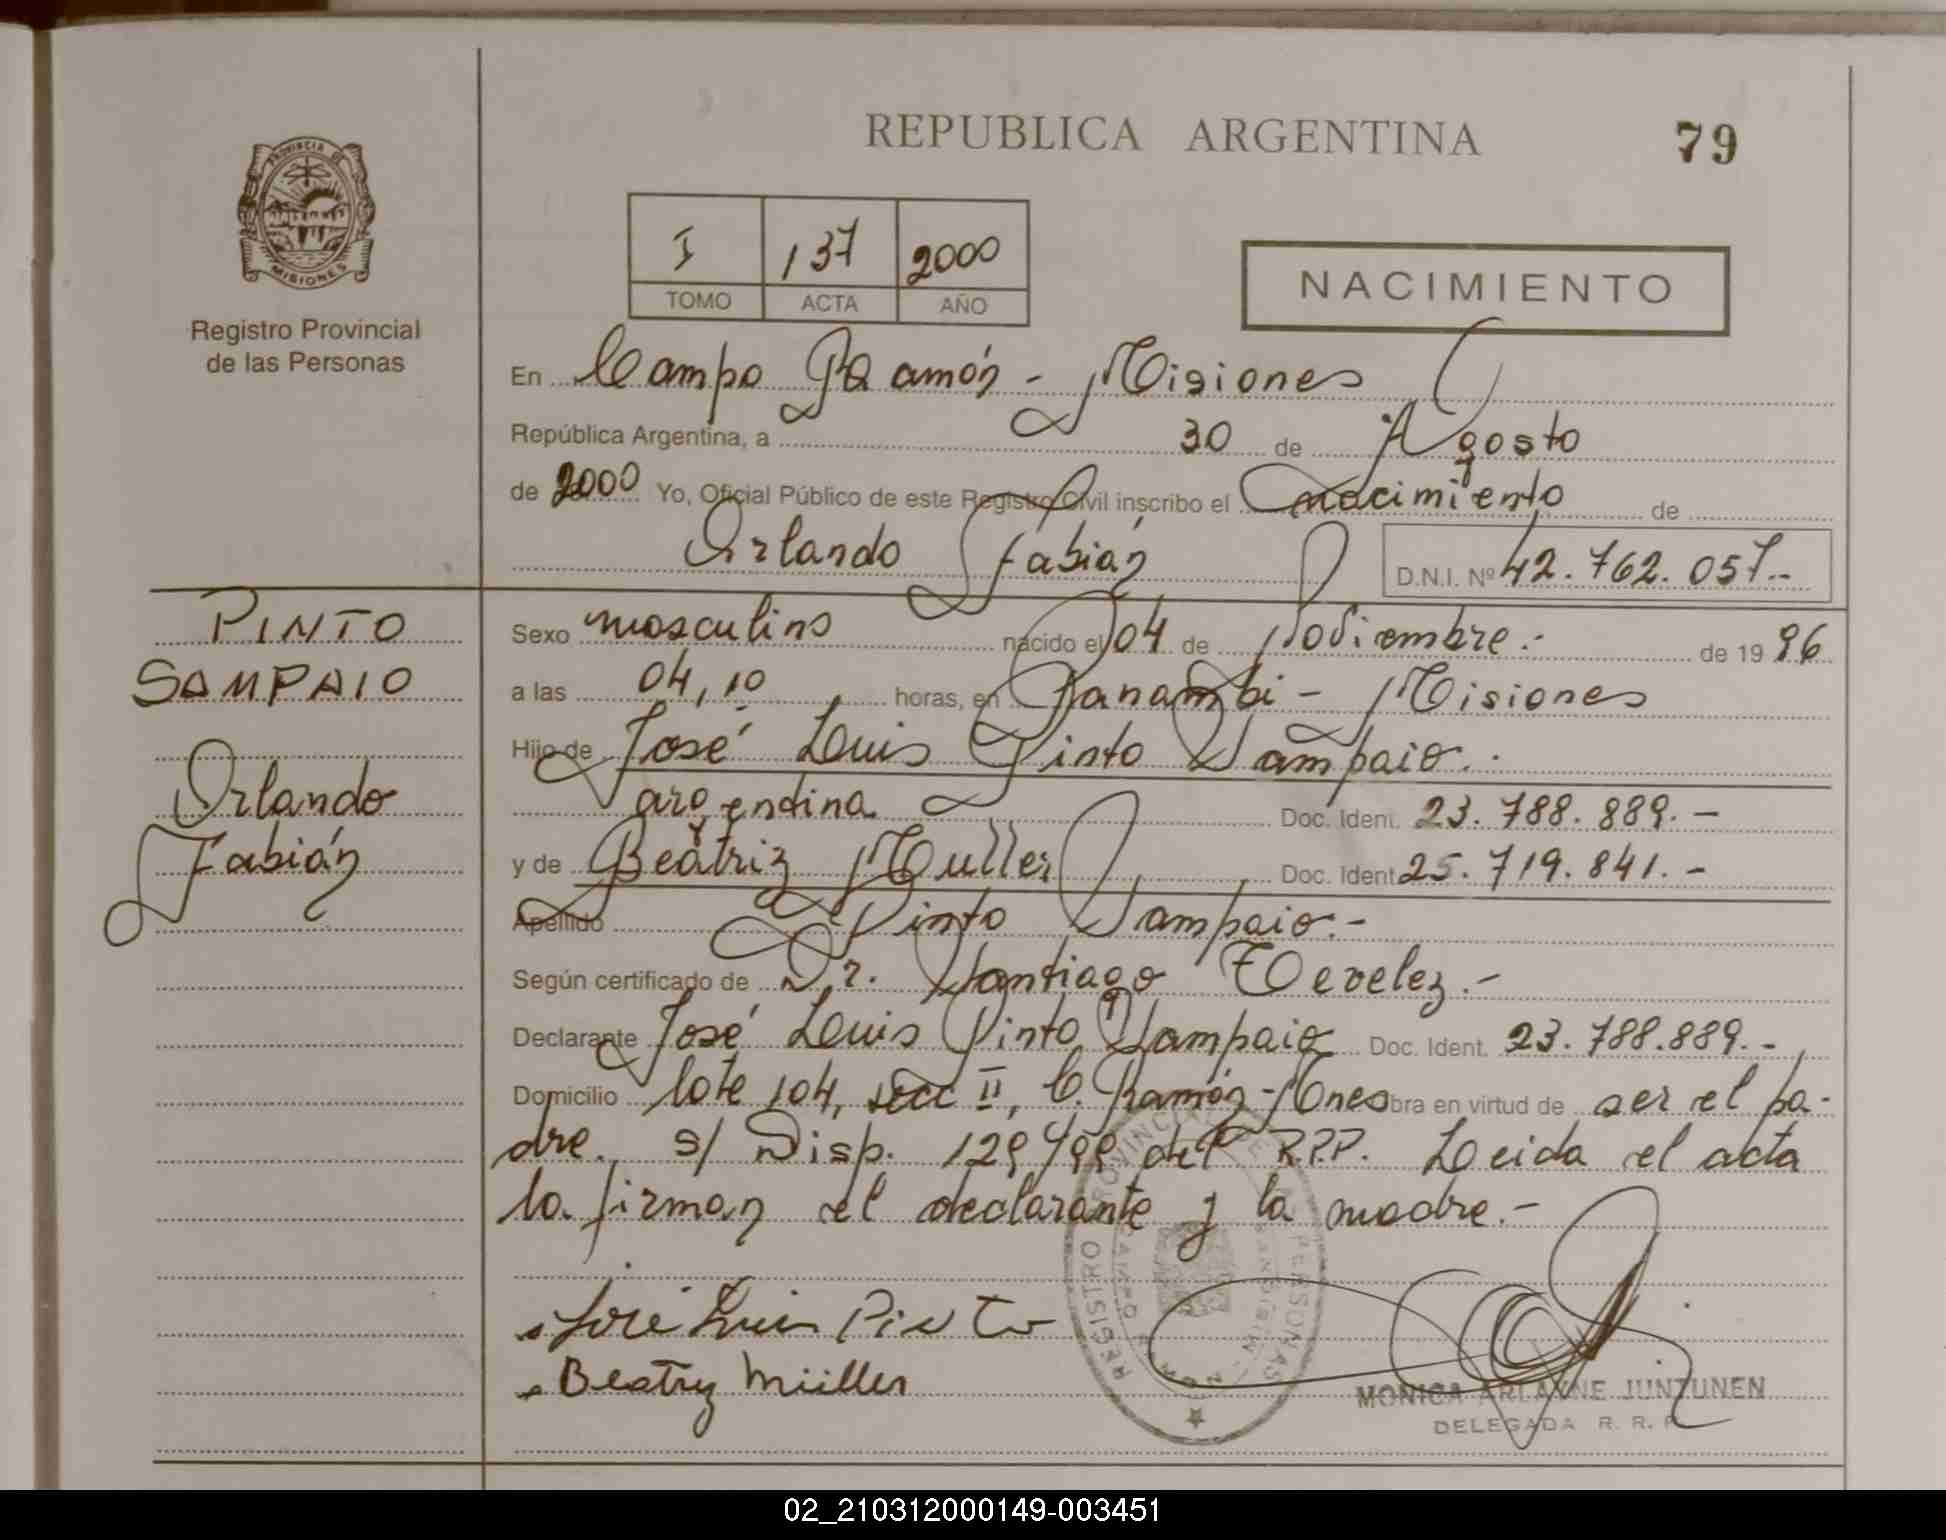 REPUBLICA ARGENTINA
79
PROVINCIA DE
MISIONES
Registro Provincial
de las Personas
I 137 2000
TOMO ACTA AÑO
NACIMIENTO
En Campo Ramón - Misiones
República Argentina, a 30 de Agosto
de 2000 Yo, Oficial Público de este Registro Civil inscribo el nacimiento de
Orlando Fabián D.N.I. Nº 42.762.057.-
PINTO
SAMPAIO
Orlando
Fabián
Sexo masculino nacido el 04 de Noviembre.- de 19 96
a las 04,10 horas, en Panambi - Misiones
Hijo de José Luis Pinto Sampaio.-
argentina Doc. Ident. 23.788.889.-
y de Beatriz Muller Doc. Ident. 25.719.841.-
Apellido Pinto Sampaio.-
Según certificado de Dr. Santiago Tevelez.-
Declarante José Luis Pinto Sampaio Doc. Ident. 23.788.889.-
Domicilio lote 104, secc II, C. Ramón - Mnes Obra en virtud de ser el pa-
dre. s/ Disp. 129/99 del R.P.P. Leida el acta
la firman el declarante y la madre.-
José Luis Pinto
Beatriz Müller
REGISTRO PROVINCIAL DE LAS PERSONAS
MONICA ARIANNE JUNTUNEN
DELEGADA R. R. P.
02_210312000149-003451